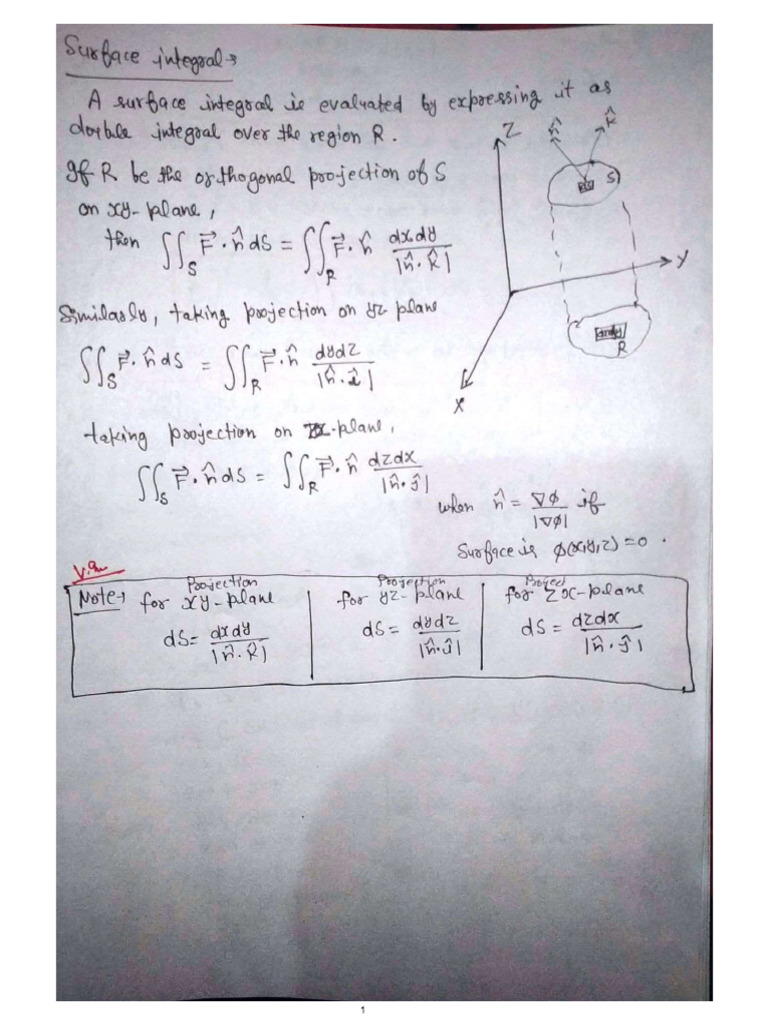 Surface integral→
A surface integral is evaluated by expressing it as
double integral over the region R.
If R be the orthogonal projection of S
on xy-plane,
then ∬_S F⃗·n̂ dS = ∬_R F⃗·n̂ dxdy/|n̂·k̂|
Z
n̂
k̂
S
Y
dxdy
R
X
Similarly, taking projection on yz plane
∬_S F⃗·n̂ dS = ∬_R F⃗·n̂ dydz/|n̂·î|
taking projection on zx-plane,
∬_S F⃗·n̂ dS = ∬_R F⃗·n̂ dzdx/|n̂·ĵ|
when n̂ = ∇φ/|∇φ| if
surface is φ(x,y,z)=0.
Note→ Projection for xy-plane
dS = dxdy/|n̂·k̂|
Projection for yz-plane
dS = dydz/|n̂·ĵ|
Project for zx-plane
dS = dzdx/|n̂·ĵ|
1